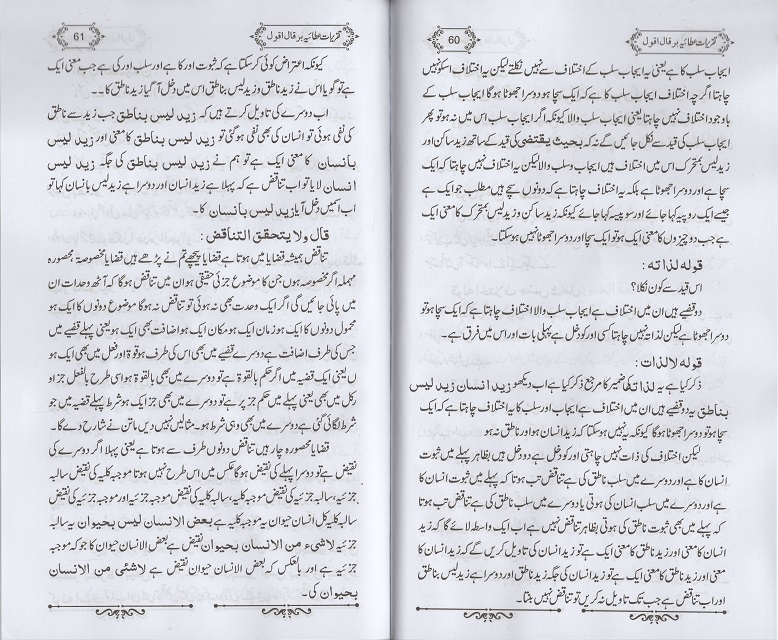 تقریرات عطائیہ بر قال اقول
60
ایجاب سلب کا ہے یعنی یہ ایجاب سلب کے اختلاف سے نہیں نکلتے لیکن یہ اختلاف اسکو نہیں
چاہتا اگرچہ اختلاف ایجاب سلب کا ہے کہ ایک سچا ہو دوسرا جھوٹا ہوگا ایجاب سلب کے
باوجود اختلاف نہیں چاہتا یعنی ایجاب سلب والا کیونکہ اگر ایجاب سلب اس میں نہ ہو تو پھر
ایجاب سلب کی قید سے نکل جائیں گے نہ کہ بحیث یقتضی کی قید کے ساتھ زید ساکن اور
زید لیس بمتحرک اس میں اختلاف ہیں ایجاب وسلب والا لیکن یہ اختلاف نہیں چاہتا کہ ایک
سچا ہے اور دوسرا جھوٹا ہے بلکہ یہ اختلاف چاہتا ہے کہ دونوں سچے ہیں مطلب جو ایک ہے
جیسے ایک روپیہ کہا جائے اور سو پیسہ کہا جائے کیونکہ زید ساکن و زید لیس بمتحرک کا معنی ایک
ہے جب دو چیزوں کا معنی ایک ہو تو ایک سچا اور دوسرا جھوٹا نہیں ہوسکتا۔
قوله لذاته :
اس قید سے کون نکلا؟
دو قضیے ہیں ان میں اختلاف ہے ایجاب سلب والا اختلاف چاہتا ہے کہ ایک سچا ہو تو
دوسرا جھوٹا ہے لیکن لذاتہ نہیں چاہتا کسی اور کو دخل ہے پہلی بات اور اس میں فرق ہے۔
قوله لالذات :
ذکر کیا ہے یہ لذاتکا ضمیر کا مرجع ذکر کیا ہے اب دیکھو زید انسان زید لیس
بناطق یہ دو قضیے ہیں ان میں اختلاف ہے ایجاب اور سلب کا یہ اختلاف چاہتا ہے کہ ایک
سچا ہو تو دوسرا جھوٹا ہوگا کیونکہ یہ نہیں ہوسکتا کہ زید انسان ہو اور ناطق نہ ہو
لیکن اختلاف کی ذات نہیں چاہتی اور کو دخل ہے دو دخل ہیں بظاہر پہلے میں ثبوت
انسان کا ہے اور دوسرے میں سلب ناطق کی ہے تناقض تب ہوتا کہ پہلے میں ثبوت انسان کا
ہے اور دوسرے میں سلب انسان کی ہوتی یا دوسرے میں سلب ناطق کی ہے تناقض تب ہوتا
کہ پہلے میں بھی ثبوت ناطق کی ہوتی بظاہر تناقض نہیں ہے اب ایک واسطہ لائے گا کہ زید
انسان کا معنی اور زید ناطق کا معنی ایک ہے تو زید انسان کی تاویل کریں گے کہ زید انسان کا
معنی اور زید ناطق کا معنی ایک ہے تو زید انسان کی جگہ زید ناطق اور دوسرا ہے زید لیس بناطق
اور اب تناقض ہے جب تک تاویل نہ کریں تو تناقض نہیں بنتا۔
تقریرات عطائیہ بر قال اقول
61
کیونکہ اعتراض کوئی کرسکتا ہے کہ ثبوت اور کا ہے اور سلب اور کی ہے جب معنی ایک
ہے تو گویا اس نے زید ناطق و زید لیس بناطق اس میں دخل آگیا زید ناطق کا۔۔
اب دوسرے کی تاویل کرتے ہیں کہ زید لیس بناطق جب زید سے ناطق
کی نفی ہوئی تو انسان کی بھی نفی ہوگئی تو زید لیس بناطق کا معنی اور زید لیس
بانسان کا معنی ایک ہے تو ہم نے زید لیس بناطق کی جگہ زید لیس
انسان لایا تو اب تناقض ہے کہ پہلا ہے زید انسان اور دوسرا ہے زید لیس بانسان کہا تو
اب اسمیں دخل آیا زید لیس بانسان کا۔
قال ولا یتحقق التناقض :
تناقض ہمیشہ قضایا میں ہوتا ہے قضایا پیچھے تم نے پڑھے ہیں قضایا مخصوصہ، محصورہ
مہملہ اگر مخصوصہ ہوں جن کا موضوع جزئی حقیقی ہو ان میں تناقض ہوگا کہ آٹھ وحدات ان
میں پائی جائیں گی اگر ایک وحدت بھی نہ ہوئی تو تناقض نہ ہوگا موضوع دونوں کا ایک ہو
محمول دونوں کا ایک ہو زمان ایک ہو مکان ایک ہو اضافت بھی ایک ہو یعنی پہلے قضیے میں
جس کی طرف اضافت ہے دوسرے قضیے میں بھی اس کی طرف ہو قوۃ اور فعل میں بھی ایک ہو
ں یعنی ایک قضیہ میں اگر حکم بالقوۃ ہے تو دوسرے میں بھی بالقوۃ ہو اسی طرح بالفعل جز او
رکل میں بھی یعنی پہلے میں حکم جز پر ہے تو دوسرے میں بھی جز ایک ہو شرط پہلے قضیہ میں جو
شرط لگائی گئی ہے دوسرے میں بھی وہی شرط ہو۔ مثالیں نہیں دیں ماتن نے شارح دے گا۔
قضایا محصورہ چار ہیں تناقض دونوں طرف سے ہوتا ہے یعنی پہلا اگر دوسرے کی
نقیض ہے تو دوسرا پہلے کی نقیض ہوگا عکس میں اس طرح نہیں ہوتا موجبہ کلیہ کی نقیض سالبہ
جزئیہ، سالبہ جزئیہ کی نقیض موجبہ کلیہ، سالبہ کلیہ کی نقیض موجبہ جزئیہ اور موجبہ جزئیہ کی نقیض
سالبہ کلیہ کل انسان حیوان یہ موجبہ کلیہ ہے بعض الانسان لیس بحیوان یہ سالبہ
جزئیہ لاشیء من الانسان بحیوان نقیض ہے بعض الانسان حیوان کا جو کہ موجبہ
جزئیہ ہے اور بالعکس کہ بعض الانسان حیوان نقیض ہے لاشئی من الانسان
بحیوان کی۔